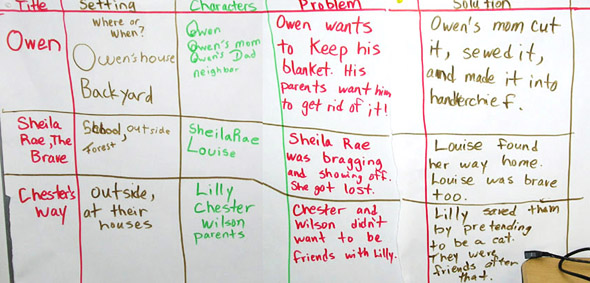 Title Setting Characters Problem Solution
Owen
where or
when?
Owen's house
Backyard
Owen
Owen's mom
Owen's Dad
neighbor
Owen wants
to Keep his
blanket. His
parents want him
to get rid of it!
Owen's mom cut
it, sewed it,
and made it into
handkerchief.
Sheila
Rae, The
Brave
School, outside
Forest
Sheila Rae
Louise
Sheila Rae
was bragging
and showing off.
She got lost.
Louise found
her way home.
Louise was brave
too.
Chester's
way
outside,
at their
houses
Lilly
Chester
Wilson
parents
Chester and
Wilson didn't
want to be
friends with Lilly.
Lilly saved them
by pretending
to be a cat.
They were
friends after
that.